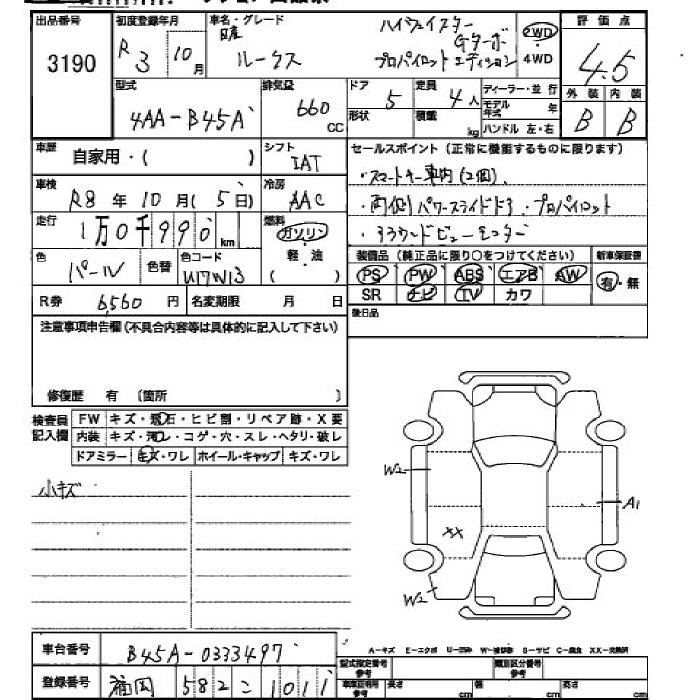 出品番号 初度登録年月 車名・グレード 評価点
3190 R3 10月 日産 ルークス ハイウェイスター Gターボ プロパイロットエディション 2WD ・ 4WD 4.5
型式 排気量 ドア 定員 ディーラー・並行 外装 内装
4AA-B45A 660 CC 5 4人 モデル年式 年 B B
形状 積載 kg ハンドル 左・右
車歴 自家用・( ) シフト IAT セールスポイント (正常に機能するものに限ります)
車検 R8年10月(5日) 冷房 AAC ・スマートキー車内(2個)、
・両側パワースライドドア・プロパイロット
走行 1万0千990km 燃料 ガソリン 軽・油 ( ) ・アラウンドビューモニター
色 パール 色替 色コード 装備品 (純正品に限り〇をつけてください) 新車保証書
PS PW ABS エアB AW 有・無
SR ナビ TV カワ
R券 6,560円 名変期限 月 日
後日品
注意事項申告欄(不具合内容等は具体的に記入して下さい)
修復歴 有 (箇所 )
検査員記入欄 FW キズ・飛石・ヒビ割・リペア跡・X要
内装 キズ・汚レ・コゲ・穴・スレ・ヘタリ・破レ
ドアミラー キズ・ワレ ホイール・キャップ キズ・ワレ
小キズ
W2
A1
XX
W2
A-キズ E-エクボ U-凹み W-補修跡 S-サビ C-腐食 XX-交換済
車台番号 B45A-0333497 型式指定番号 参考 類別区分番号 参考
登録番号 福岡 582 こ 1011 車庫証明用 参考 長さ cm 幅 cm 高さ cm